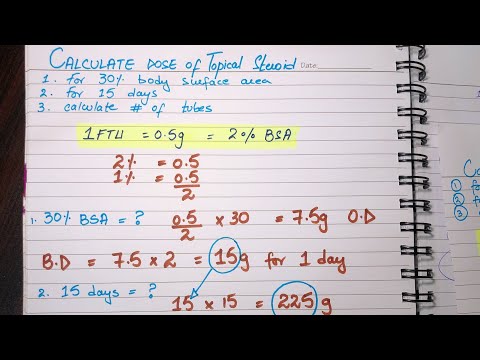 CALCULATE DOSE OF Topical Steroid Date:
1. For 30% body surface area
2. For 15 days
3. calculate # of tubes
1 FTU = 0.5g = 2% BSA
2% = 0.5
1% = 0.5
2
1. 30% BSA = ? 0.5 × 30 = 7.5g O.D
2
B.D = 7.5 × 2 = 15g for 1 day
2. 15 days = ? 15 × 15 = 225 g
1
2
3